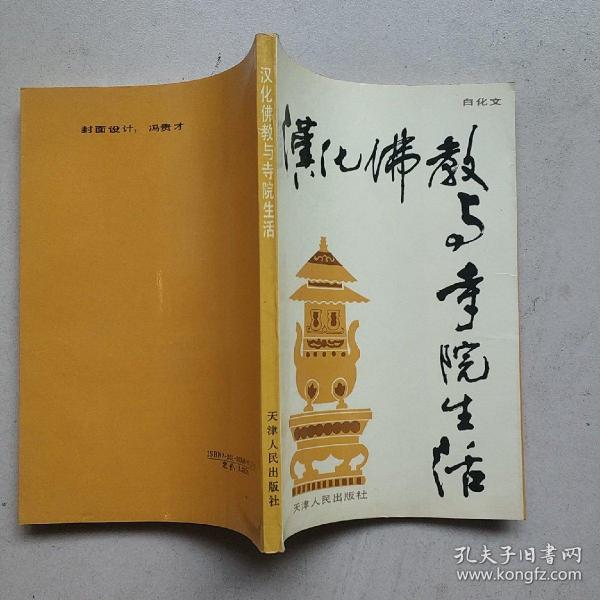 封面设计：冯贵才
汉化佛教与寺院生活
天津人民出版社
白化文
漢化佛教
与寺院生活
天津人民出版社
孔夫子旧书网
www.kongfz.com